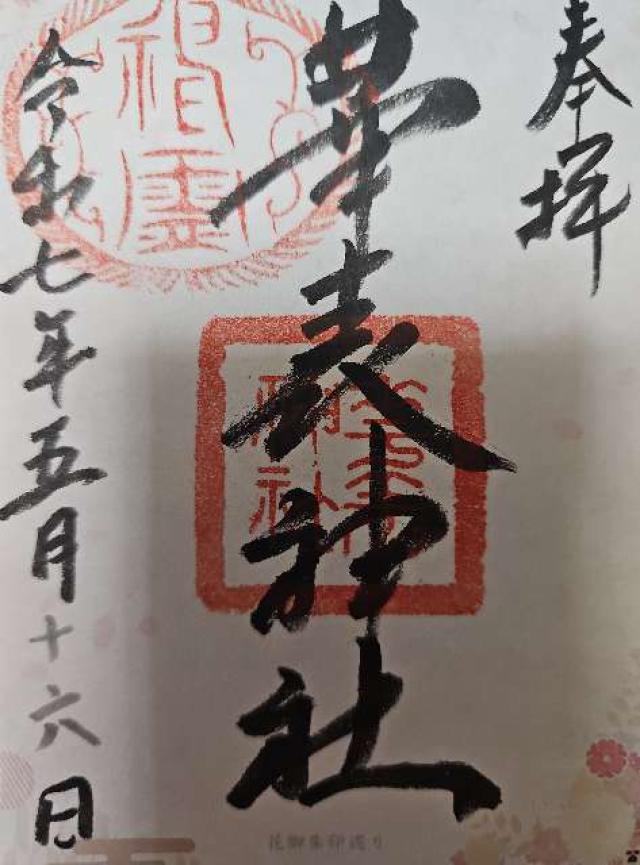 奉拝
華表神社
令和七年五月十六日
花御朱印巡り